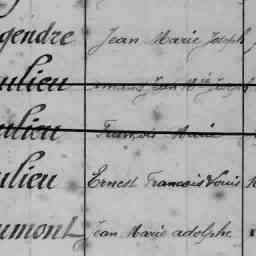 gendre Jean Marie Joseph
ulieu Joseph
ulieu François Marie
ulieu Ernest Francois Louis
umont Jean Marie adolphe